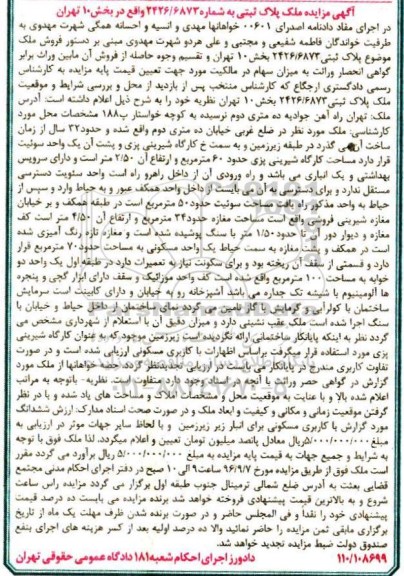 آگهی مزایده ملک پلاک ثبتی به شماره ۲۴۲۶/۶۸۷۳ واقع در بخش ۱۰ تهران
در اجرای مفاد دادنامه اصداری ۰۰۶۰۱ خواهانها مهدی و انسیه و احسانه همگی شهرت مهدوی به
طرفیت خواندگان فاطمه شفیعی و مجتبی و علی هردو شهرت مهدوی مبنی بر دستور فروش ملک
موضوع پلاک ثبتی ۲۴۲۶/۶۸۷۳ بخش ۱۰ تهران و تقسیم وجوه حاصله از فروش آن مابین وراث برابر
گواهی انحصار وراثت به میزان سهام در مالکیت مورد جهت تعیین قیمت پایه مزایده به کارشناس
رسمی دادگستری ارجاع که کارشناس منتخب پس از بازدید از محل و بررسی شرایط و موقعیت
ملک پلاک ثبتی ۲۴۲۶/۶۸۷۳ بخش ۱۰ تهران نظریه خود را به شرح ذیل اعلام داشته است: آدرس
ملک: تهران راه آهن جوادیه ده متری دوم نرسیده به کوچه خوانسار پ ۱۸۸ مشخصات محل مورد
کارشناسی: ملک مورد نظر در ضلع غربی خیابان ده متری دوم واقع شده و حدود ۳۲ سال از زمان
ساخت آن می گذرد در طبقه زیرزمین و به سمت خ کارگاه شیرینی پزی و پشت آن یک واحد سوئیت
قرار دارد مساحت کارگاه شیرینی پزی حدود ۶۰ مترمربع و ارتفاع آن ۲/۵۰ متر است و دارای سرویس
بهداشتی و یک انباری می باشد و راه ورودی آن از داخل راهرو راه است واحد سئویت دسترسی
مستقل ندارد و برای دسترسی به آن می بایست از داخل واحد همکف عبور و به حیاط وارد و سپس از
حیاط به واحد مذکور راه یافت مساحت سوئیت حدود ۵۰ مترمربع است در طبقه همکف و بر خیابان
مغازه شیرینی فروشی واقع است مساحت مغازه حدود ۳۴ مترمربع و ارتفاع آن ۴/۵۰ متر است کف
مغازه و دیوار دور آن تا حدود ۱/۵۰ متر با سنگ پوشیده شده است و مغازه تازه رنگ آمیزی شده
است در همکف و پشت مغازه به سمت حیاط یک واحد مسکونی به مساحت حدود ۷۰ مترمربع قرار
دارد و قسمتی از سقف آن ریخته بود و برای سکونت نیاز به تعمیرات دارد در طبقه اول یک واحد دو
خوابه به مساحت ۱۰۰ مترمربع واقع شده است کف واحد موزائیک و سقف دارای ابزار گچی و پنجره
ها آلومینیوم با شیشه تک جداره می باشد آشپزخانه رو به خیابان و دارای کابینت است سرمایش
ساختمان با کولرآبی و گرمایش با گاز تامین می گردد نمای ساختمان از داخل حیاط و خیابان با
سنگ اجرا شده است ملک عقب نشینی دارد و میزان دقیق آن با استعلام از شهرداری مشخص می
گردد نظر به اینکه پایانکار ساختمانی ارائه نگردیده است زیرزمین موجود که به عنوان کارگاه شیرینی
پزی مورد استفاده قرار میگرفت براساس اظهارات با کاربری مسکونی ارزیابی شده است و در صورت
تفاوت کاربری مندرج در پایانکار می بایست در ارزیابی تجدیدنظر گردد. سهم خواهانها از ملک مورد
گزارش در گواهی حصر وراثت با آنچه در اسناد وجود دارد متفاوت است. نظریه- باتوجه به مراتب
اعلام شده بالا و با عنایت به موقعیت محل و مشخصات املاک و مساحت های یاد شده و با در نظر
گرفتن موقعیت زمانی و مکانی و کیفیت و ابعاد ملک و در صورت صحت اسناد مدارک: ارزش ششدانگ
مورد گزارش با کاربری مسکونی برای انبار زیر زیرزمین و با لحاظ سایر جهات موثر در ارزیابی به
مبلغ ۵/۰۰۰/۰۰۰/۰۰۰ ریال معادل پانصد میلیون تومان تعیین و اعلام میگردد. لذا ملک فوق با توجه
به شرایط و جمیع جهات به قیمت پایه مزایده به مبلغ ۵/۰۰۰/۰۰۰/۰۰۰ ریال برآورد می گردد مقرر
است ملک فوق از طریق مزایده مورخ ۹۶/۹/۷ ساعت ۹ الی ۱۰ صبح در دفتر اجرای احکام مدنی مجتمع
قضایی بعثت به آدرس ضلع شمالی ترمینال جنوب طبقه اول برگزار می گردد مزایده راس ساعت
شروع و به بالاترین قیمت پیشنهادی فروخته خواهد شد برنده مزایده می بایست ده درصد قیمت
پیشنهادی خود را نقدا و فی المجلس حاضر و در صورت برنده شدن ظرف مهلت یک ماه از تاریخ
برگزاری مابقی ثمن مزایده را حاضر نمائید والا ده درصد اولیه بعد از کسر هزینه های اجرای بنفع
صندوق دولت ضبط مزایده تجدید خواهد شد.
۱۱۰/۱۰۸۶۹۹ دادورز اجرای احکام شعبه ۱۸۱ دادگاه عمومی حقوقی تهران